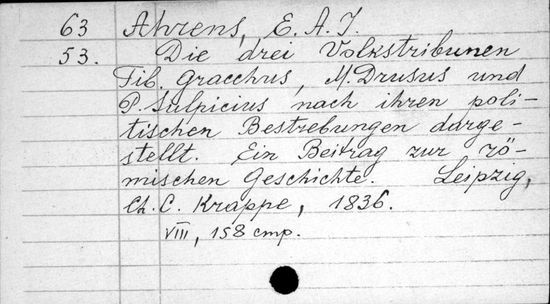 63 Ahrens, E. A. J.
53. Die drei Volkstribunen
Tib. Gracchus, M. Drusus und
P. Sulpicius nach ihren poli-
tischen Bestrebungen darge-
stellt. Ein Beitrag zur rö-
mischen Geschichte. Leipzig,
Ch. C. Krappe, 1836.
VIII, 158 стр.